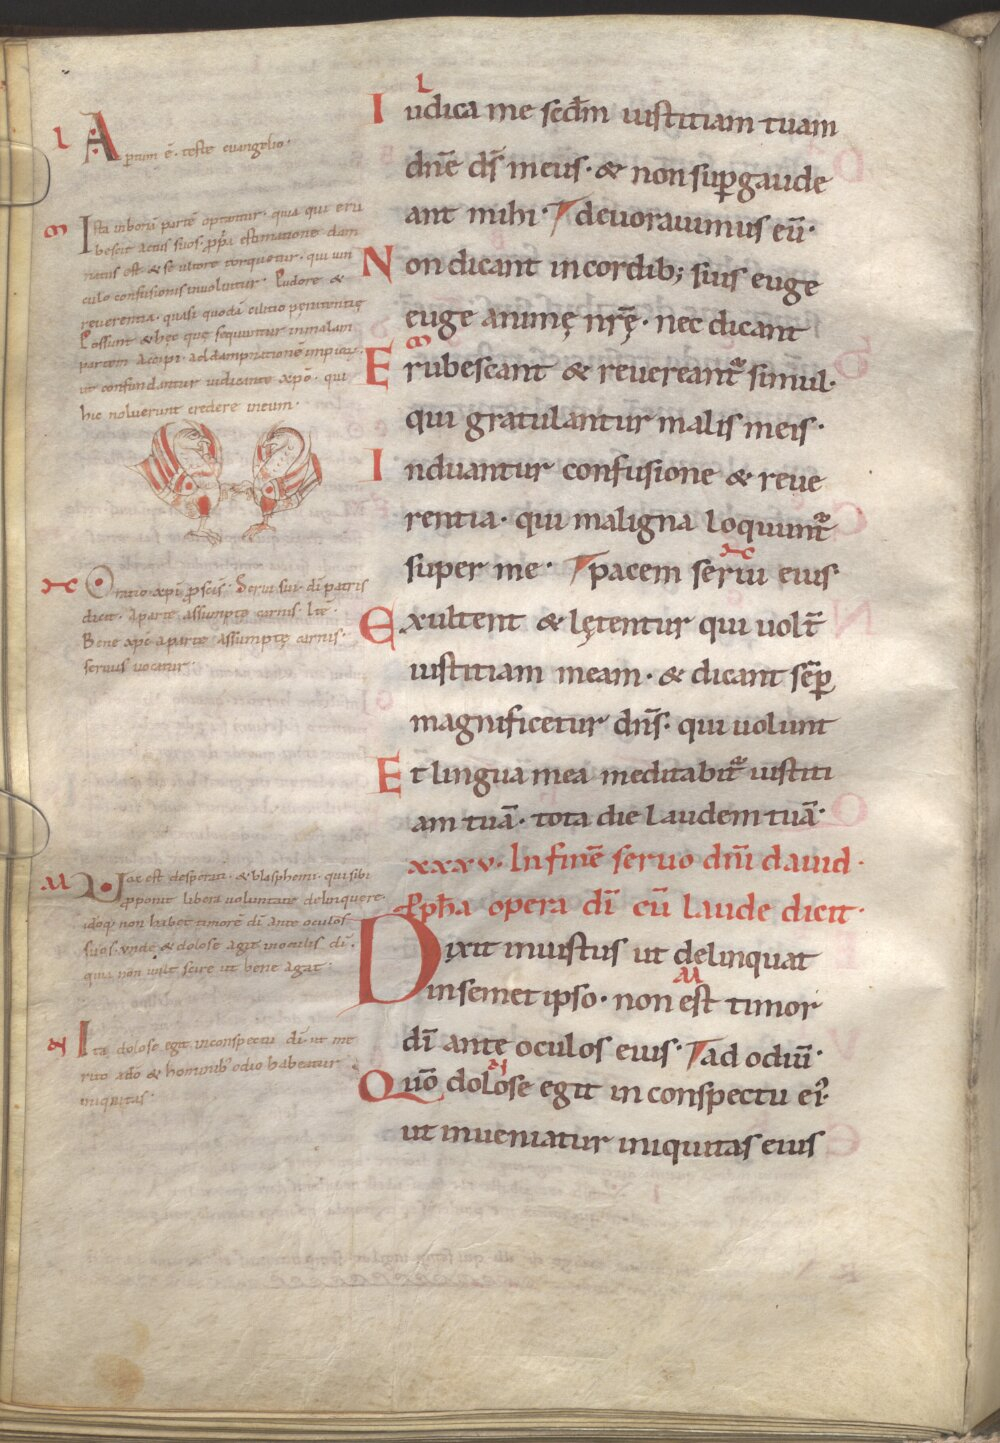 L
A ptum ē. teste euangelio.
Iudica me scdm iustitiam tuam
dn̄e ds̄ meus. & non supgaude
ant mihi. deuorauimus eū.
Non dicant in cordib; suis euge
euge animę nr̄ę. nec dicant
Erubescant & reuereant simul.
qui gratulantur malis meis.
Induantur confusione & reue
rentia. qui maligna loquunt
super me. pacem serui eius
Exultent & lętentur qui uolt̄
iustitiam meam. & dicant sēp
magnificetur dn̄s. qui uolunt
Et lingua mea meditabit iustiti
am tuā. tota die laudem tuā.
xxxv. In finē seruo dn̄i dauid.
Pph̄a opera dī cū laude dicit.
Dixit iniustus ut delinquat
in semet ipso. non est timor
dī ante oculos eius. ad odiū.
Quō dolose egit in conspectu ei.
ut inueniatur iniquitas eius
M
Ista in boni partē optantur. quia qui eru
bescit actus suos. ppa estimatione dam
natus est & se ultore torquetur. qui uin
culo confusionis inuoluitur. Pudore &
reuerentia. quasi quodā cilitio pęnitentię
Possunt & hęc quę sequuntur in malam
partem accipi. ad damnationē impior
ut confundantur iudicante xpō. qui
hic noluerunt credere in eum.
Oratio xpi p scis. Serui sui dī patris
dicit. a parte assumptę carnis.
Bene xpc a parte assumptę carnis.
seruus uocatur.
Uox est desperati. & blasphemi. qui sibi
pponit libera uoluntate delinquere.
idoq non habet timorē dī ante oculos
suos. unde & dolose agit in oculis dī.
quia non uult scire ut bene agat.
Ita dolose egit in conspectu dī. ut me
rito a dō & hominib; odio habeatur
iniquitas.